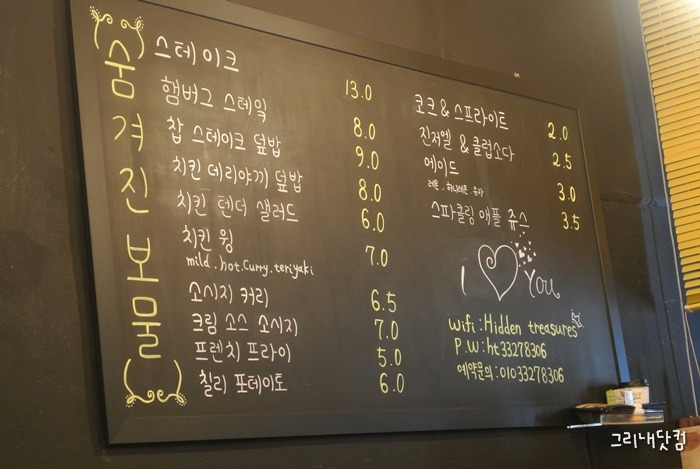 숨겨진보물
스테이크 13.0
햄버그 스테잌 8.0
찹 스테이크 덮밥 9.0
치킨 데리야끼 덮밥 8.0
치킨 텐더 샐러드 6.0
치킨 윙 7.0
mild . hot. Curry. teriyaki
소시지 커리 6.5
크림 소스 소시지 7.0
프렌치 프라이 5.0
칠리 포테이토 6.0
코크 & 스프라이트 2.0
진저엘 & 클럽소다 2.5
에이드 3.0
레몬 . 허니레몬 . 유자
스파클링 애플 쥬스 3.5
I ♡ You
Wifi : Hidden treasures
P.W : ht33278306
예약문의 : 01033278306
그리내닷컴